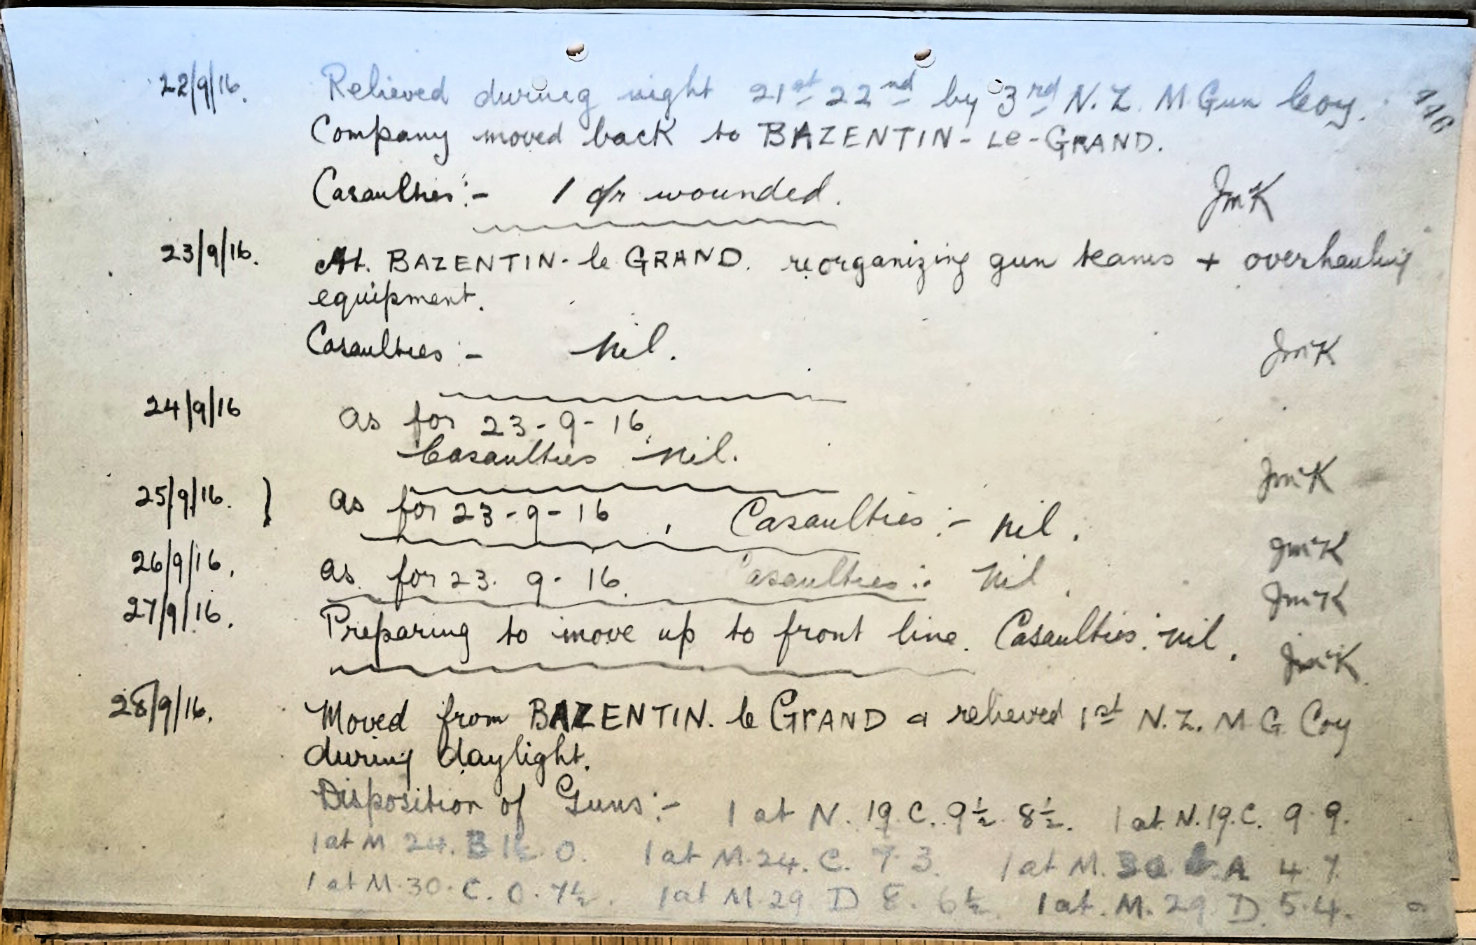 446
22/9/16. Relieved during night 21st 22nd by 3rd N.Z. M.Gun Coy.
Company moved back to BAZENTIN-Le-GRAND.
Casaulties:- 1 O/r wounded. JMcK
23/9/16. At. BAZENTIN-le GRAND. reorganizing gun teams + overhauling
equipment.
Casaulties:- Nil. JMcK
24/9/16 As for 23-9-16.
Casaulties Nil. JMcK
25/9/16. } As for 23-9-16, Casaulties:- Nil. JMcK
26/9/16. As for 23.9.16. Casaulties:- Nil. JMcK
27/9/16. Preparing to move up to front line. Casaulties: Nil. JMcK
28/9/16. Moved from BAZENTIN. le GrAND & relieved 1st N.Z. M.G. Coy
during daylight.
Disposition of Guns:- 1 at N.19.C.9½ 8½. 1 at N.19.C. 9.9.
1 at M.24.B 1½.0. 1 at M.24.C. 7.3. 1 at M.30 A 4.7.
1 at M.30.C.0.7½. 1 at M.29 D 8.6½ 1 at M.29 D 5.4.